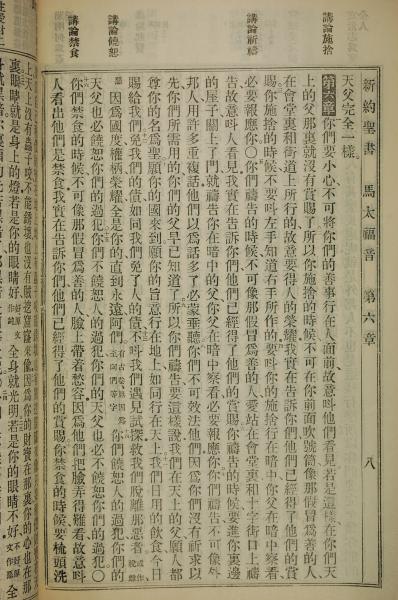 新約聖書 馬太福音 第六章 八
講論施捨
講論祈禱
講論饒恕
講論禁食
天父完全一樣。
第六章 你們要小心不可將你們的善事行在人面前故意呌他們看見若是這樣在你們天
上的父那裏就沒有賞賜了所以你施捨的時候不可在你前面吹號筒像那假冒爲善的人
在會堂裏和街道上所行的故意要得人的榮耀我實在告訴你們他們已經得了他們的賞
賜你施捨的時候不要呌左手知道右手所作的要呌你的施捨行在暗中你父在暗中察看
必要報應你〇你們禱告的時候不可像那假冒爲善的人愛站在會堂裏和十字街口上禱
告故意呌人看見我實在告訴你們他們已經得了他們的賞賜你禱告的時候要進你裏邊
的屋子關上了門就禱告你在暗中的父你父在暗中察看必要報應你你們禱告不可像外
邦人用許多重複話他們以爲話多了必蒙垂聽你們不可效法他們因爲你們沒有祈求以
先你們所需用的你們的父早已知道了所以你們禱告要這樣說我們在天上的父願人都
尊你的名爲聖願你的國來到願你的旨意行在地上如同行在天上我們日用的飲食今日
賜給我們免我們的債如同我們免了人的債不呌我們遇見試探救我們脫離那惡者
因爲國度權柄榮耀全是你的直到永遠阿們 有古卷無因爲至阿們等字 你們饒恕人的過犯你們的
天父也必饒恕你們的過犯你們不饒恕人的過犯你們的天父也必不饒恕你們的過犯〇
你們禁食的時候不可像那假冒爲善的人臉上帶着愁容因爲他們把臉弄得難看故意呌
人看出他們是禁食我實在告訴你們他們已經得了他們的賞賜你禁食的時候要梳頭洗
上天上沒有蟲子咬不能銹壞也沒有賊挖窟窿來偷因爲你的財寶在那裏你的心也在那
裏眼睛就是身上的燈若是你的眼睛好 全身就光明若是你的眼睛不好